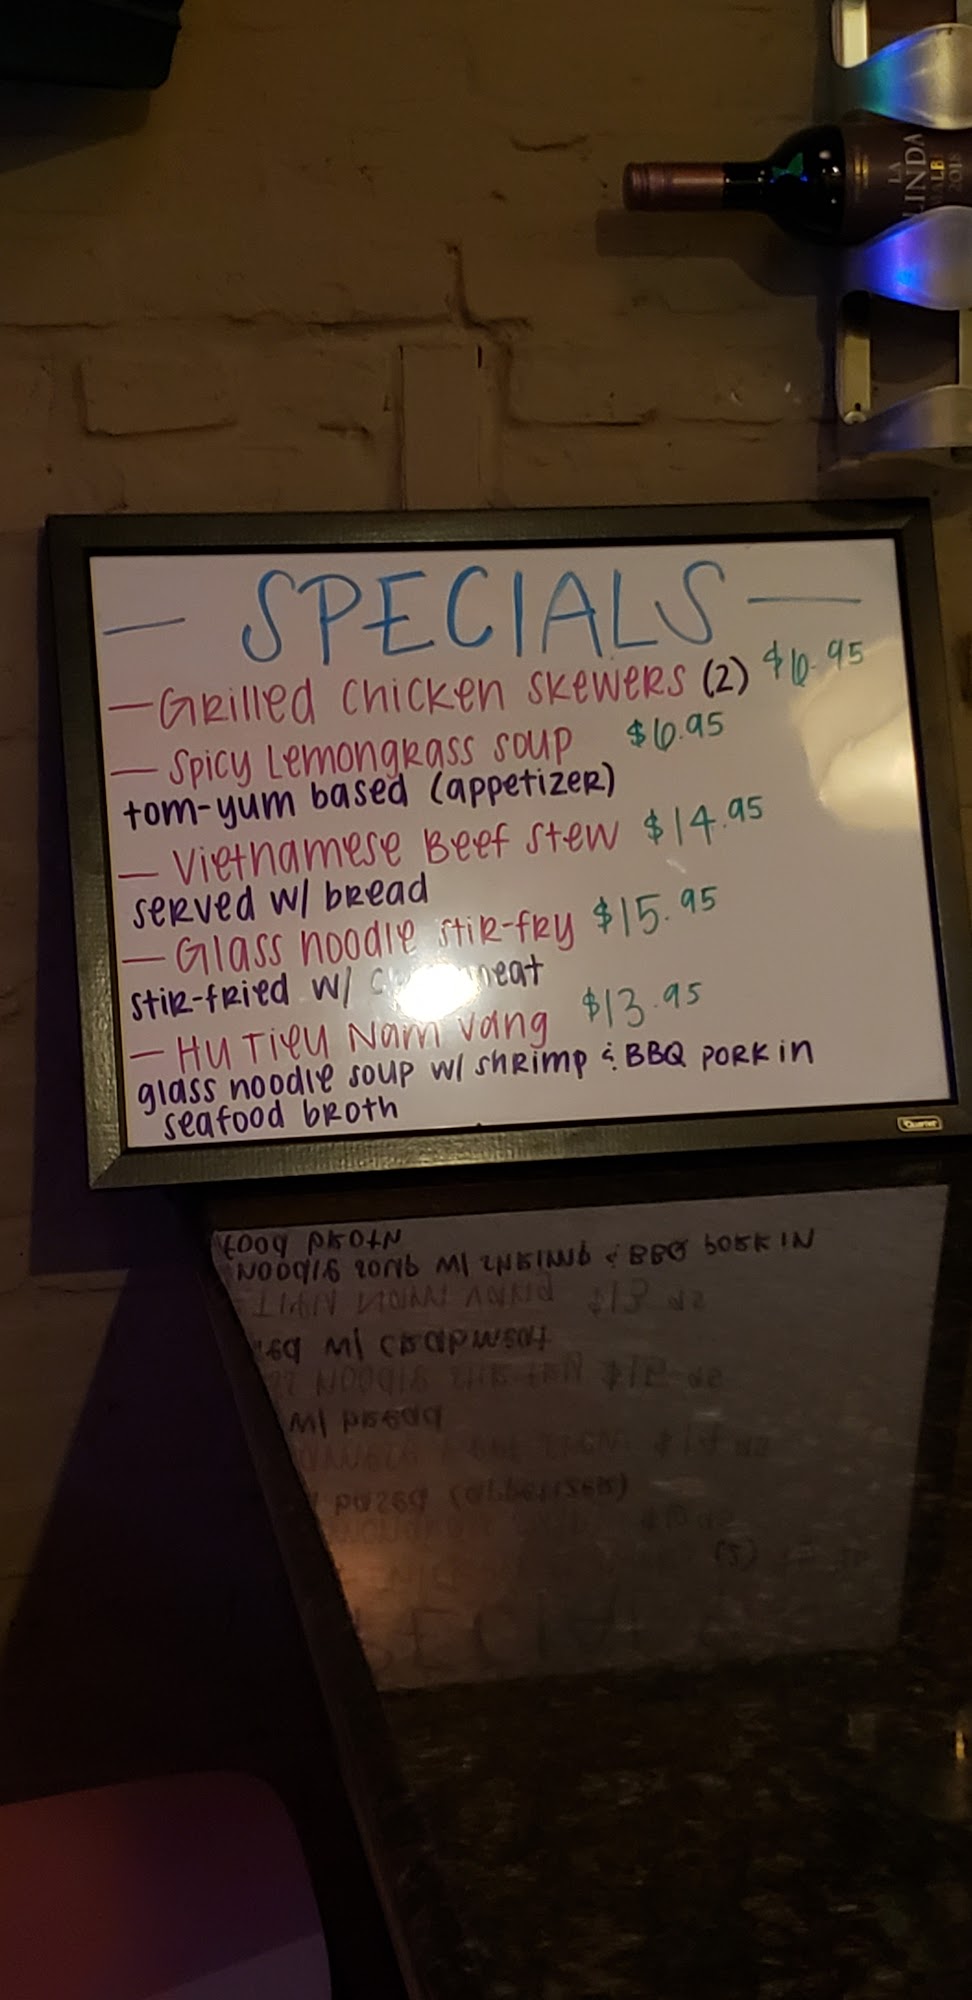 LA
LINDA
2018
— SPECIALS —
— Grilled Chicken Skewers (2) $6.95
— Spicy Lemongrass Soup $6.95
tom-yum based (appetizer)
— Vietnamese Beef Stew $14.95
served w/ bread
— Glass noodle stir-fry $15.95
stir-fried w/ crabmeat
— Hu Tieu Nam Vang $13.95
glass noodle soup w/ shrimp & BBQ pork in
seafood broth
Quartet